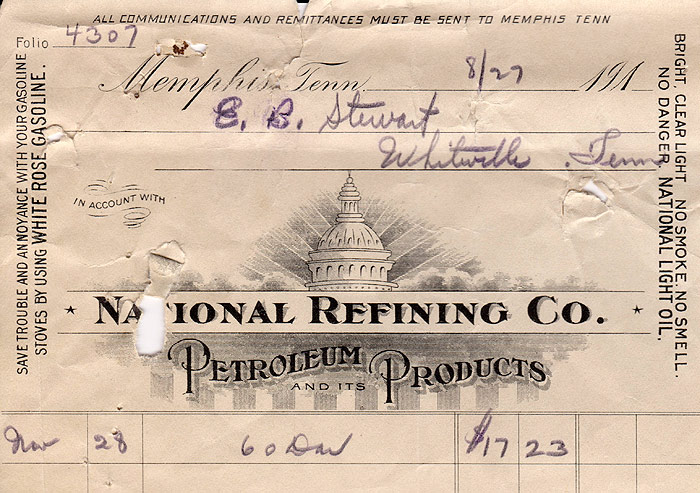 ALL COMMUNICATIONS AND REMITTANCES MUST BE SENT TO MEMPHIS TENN
Folio 4307
Memphis, Tenn. 8/27 191
E. B. Stewart
Whiteville, Tenn
IN ACCOUNT WITH
NATIONAL REFINING CO.
PETROLEUM
AND ITS
PRODUCTS
Nov 28 60 Day $17 23
SAVE TROUBLE AND ANNOYANCE WITH YOUR GASOLINE
STOVES BY USING WHITE ROSE GASOLINE.
BRIGHT, CLEAR LIGHT NO SMOKE. NO SMELL.
NO DANGER. NATIONAL LIGHT OIL.